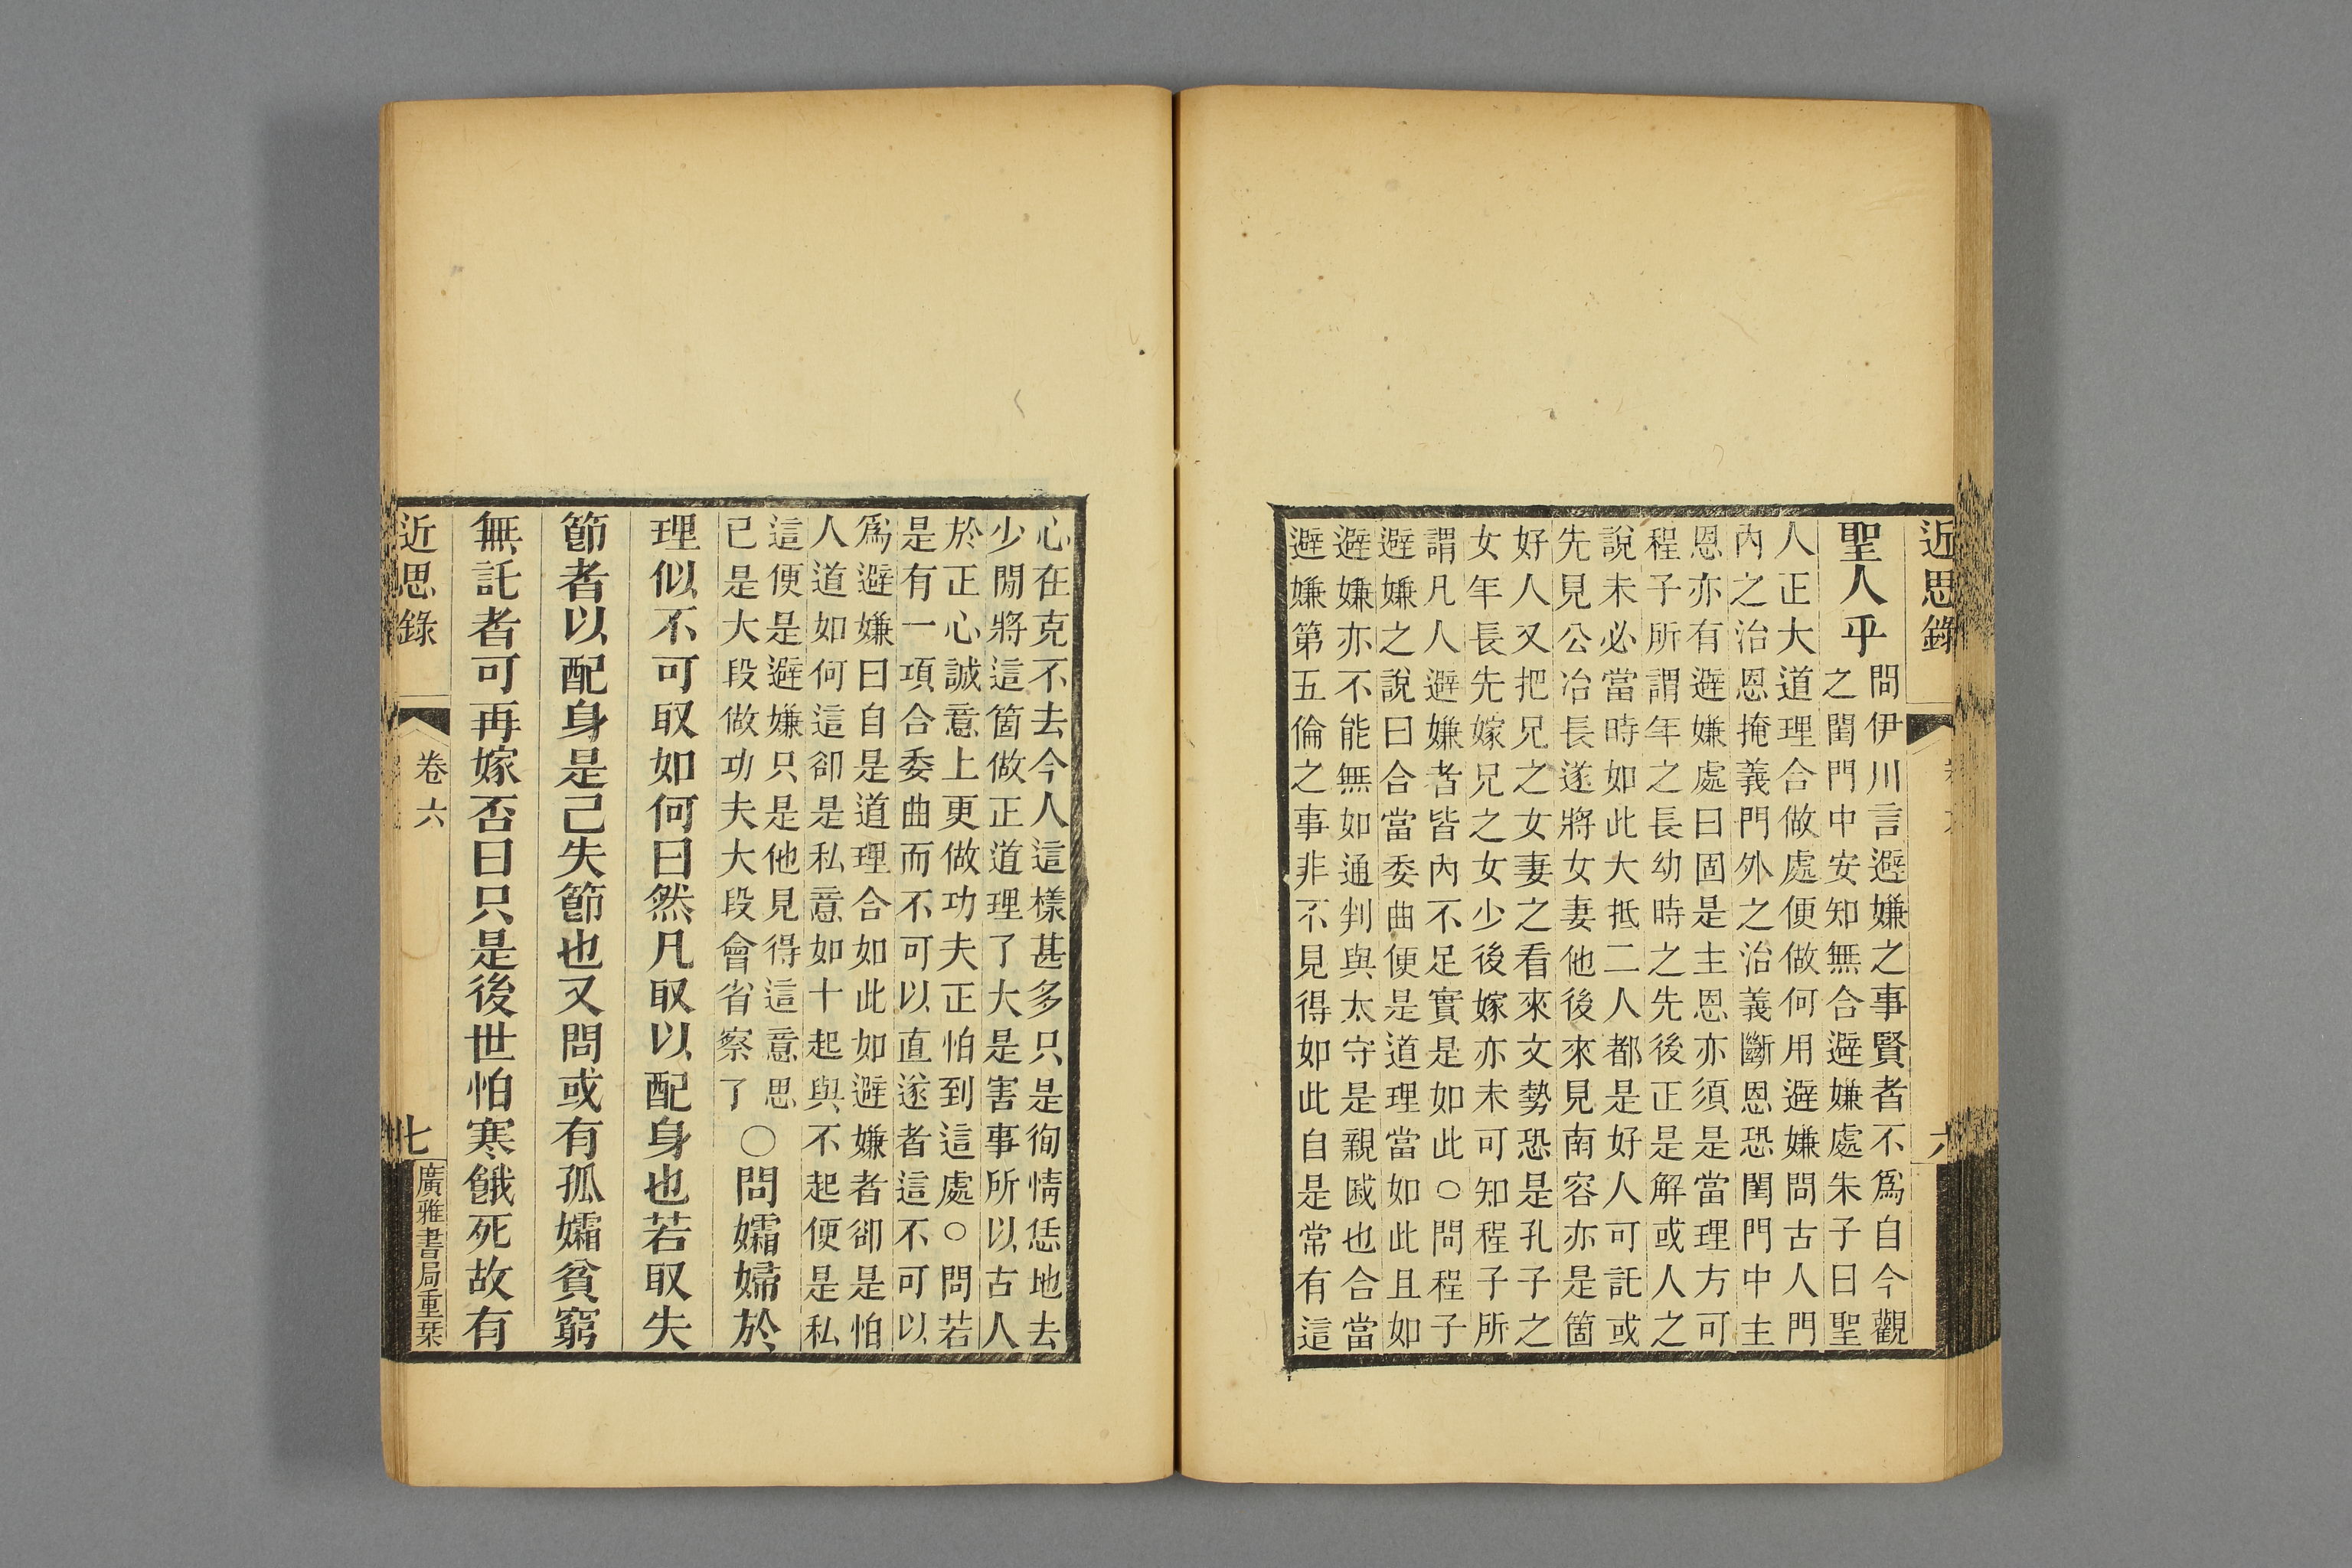 近思錄
六
聖人乎
問伊川言避嫌之事賢者不爲自今觀
之閨門中安知無合避嫌處朱子曰聖
人正大道理合做處便做何用避嫌問古人門
內之治恩掩義門外之治義斷恩恐閨門中主
恩亦有避嫌處曰固是主恩亦須是當理方可
程子所謂年之長幼時之先後正是解或人之
說未必當時如此大抵二人都是好人可託或
先見公冶長遂將女妻他後來見南容亦是箇
好人又把兄之女妻之看來文勢恐是孔子之
女年長先嫁兄之女少後嫁亦未可知程子所
謂凡人避嫌者皆內不足實是如此○問程子
避嫌之說曰合當委曲便是道理當如此且如
避嫌亦不能無如通判與太守是親戚也合當
避嫌第五倫之事非不見得如此自是常有這
心在克不去今人這樣甚多只是徇情恁地去
少閒將這箇做正道理了大是害事所以古人
於正心誠意上更做功夫正怕到這處○問若
是有一項合委曲而不可以直遂者這不可以
爲避嫌曰自是道理合如此如避嫌者卻是怕
人道如何這卻是私意如十起與不起便是私
這便是避嫌只是他見得這意思
已是大段做功夫大段會省察了
○問孀婦於
理似不可取如何曰然凡取以配身也若取失
節者以配身是己失節也又問或有孤孀貧窮
無託者可再嫁否曰只是後世怕寒餓死故有
近思錄
卷六
七
廣雅書局重栞